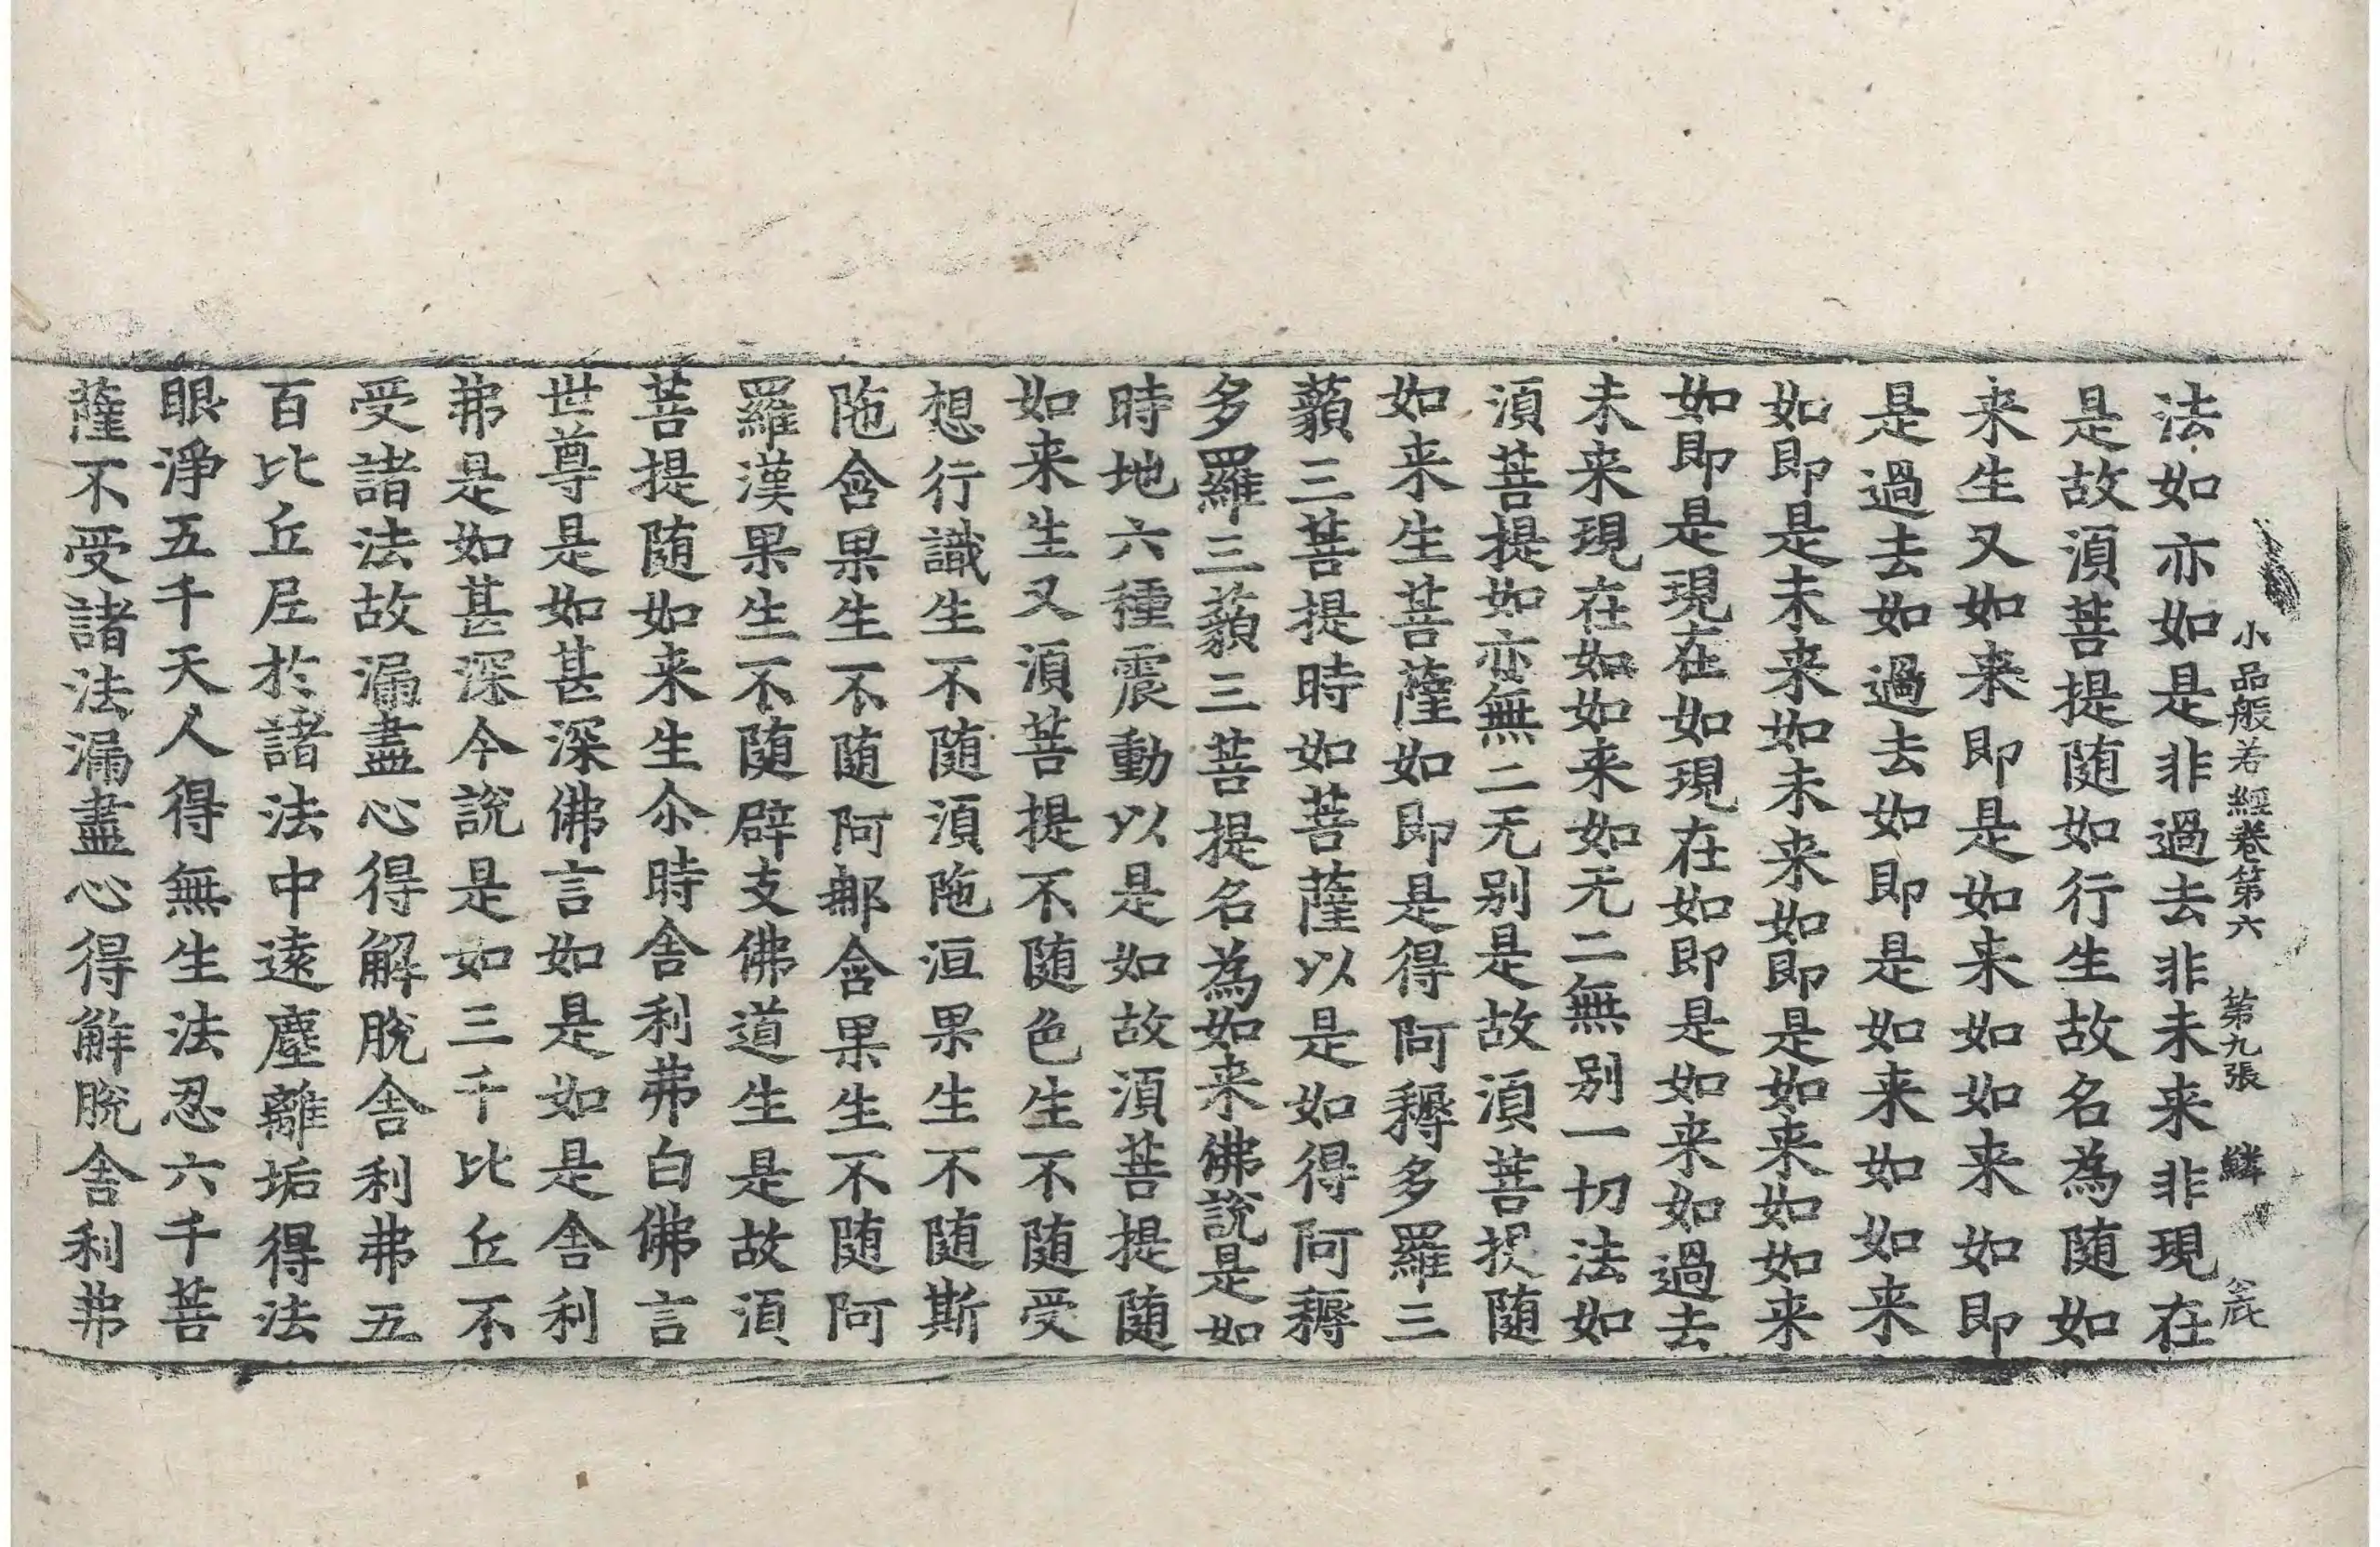 小品般若經卷第六 第九張 鱗
法如亦如是非過去非未来非現在
是故湏菩提随如行生故名為随如
来生又如来即是如来如如来如即
是過去如過去如即是如来如如来
如即是未来如未来如即是如来如如来
如即是現在如現在如即是如来如過去
未来現在如如来如无二無别一切法如
湏菩提如亦無二无别是故湏菩提随
如来生菩薩如即是得阿耨多羅三
藐三菩提時如菩薩以是如得阿耨
多羅三藐三菩提名為如来佛說是如
時地六種震動以是如故湏菩提随
如来生又湏菩提不随色生不随受
想行識生不随湏陁洹果生不随斯
陁含果生不随阿那含果生不随阿
羅漢果生不随辟支佛道生是故湏
菩提随如来生尒時舎利弗白佛言
世尊是如甚深佛言如是如是舎利
弗是如甚深今說是如三千比丘不
受諸法故漏盡心得解脫舎利弗五
百比丘尼於諸法中遠塵離垢得法
眼淨五千天人得無生法忍六千菩
薩不受諸法漏盡心得解脫舎利弗